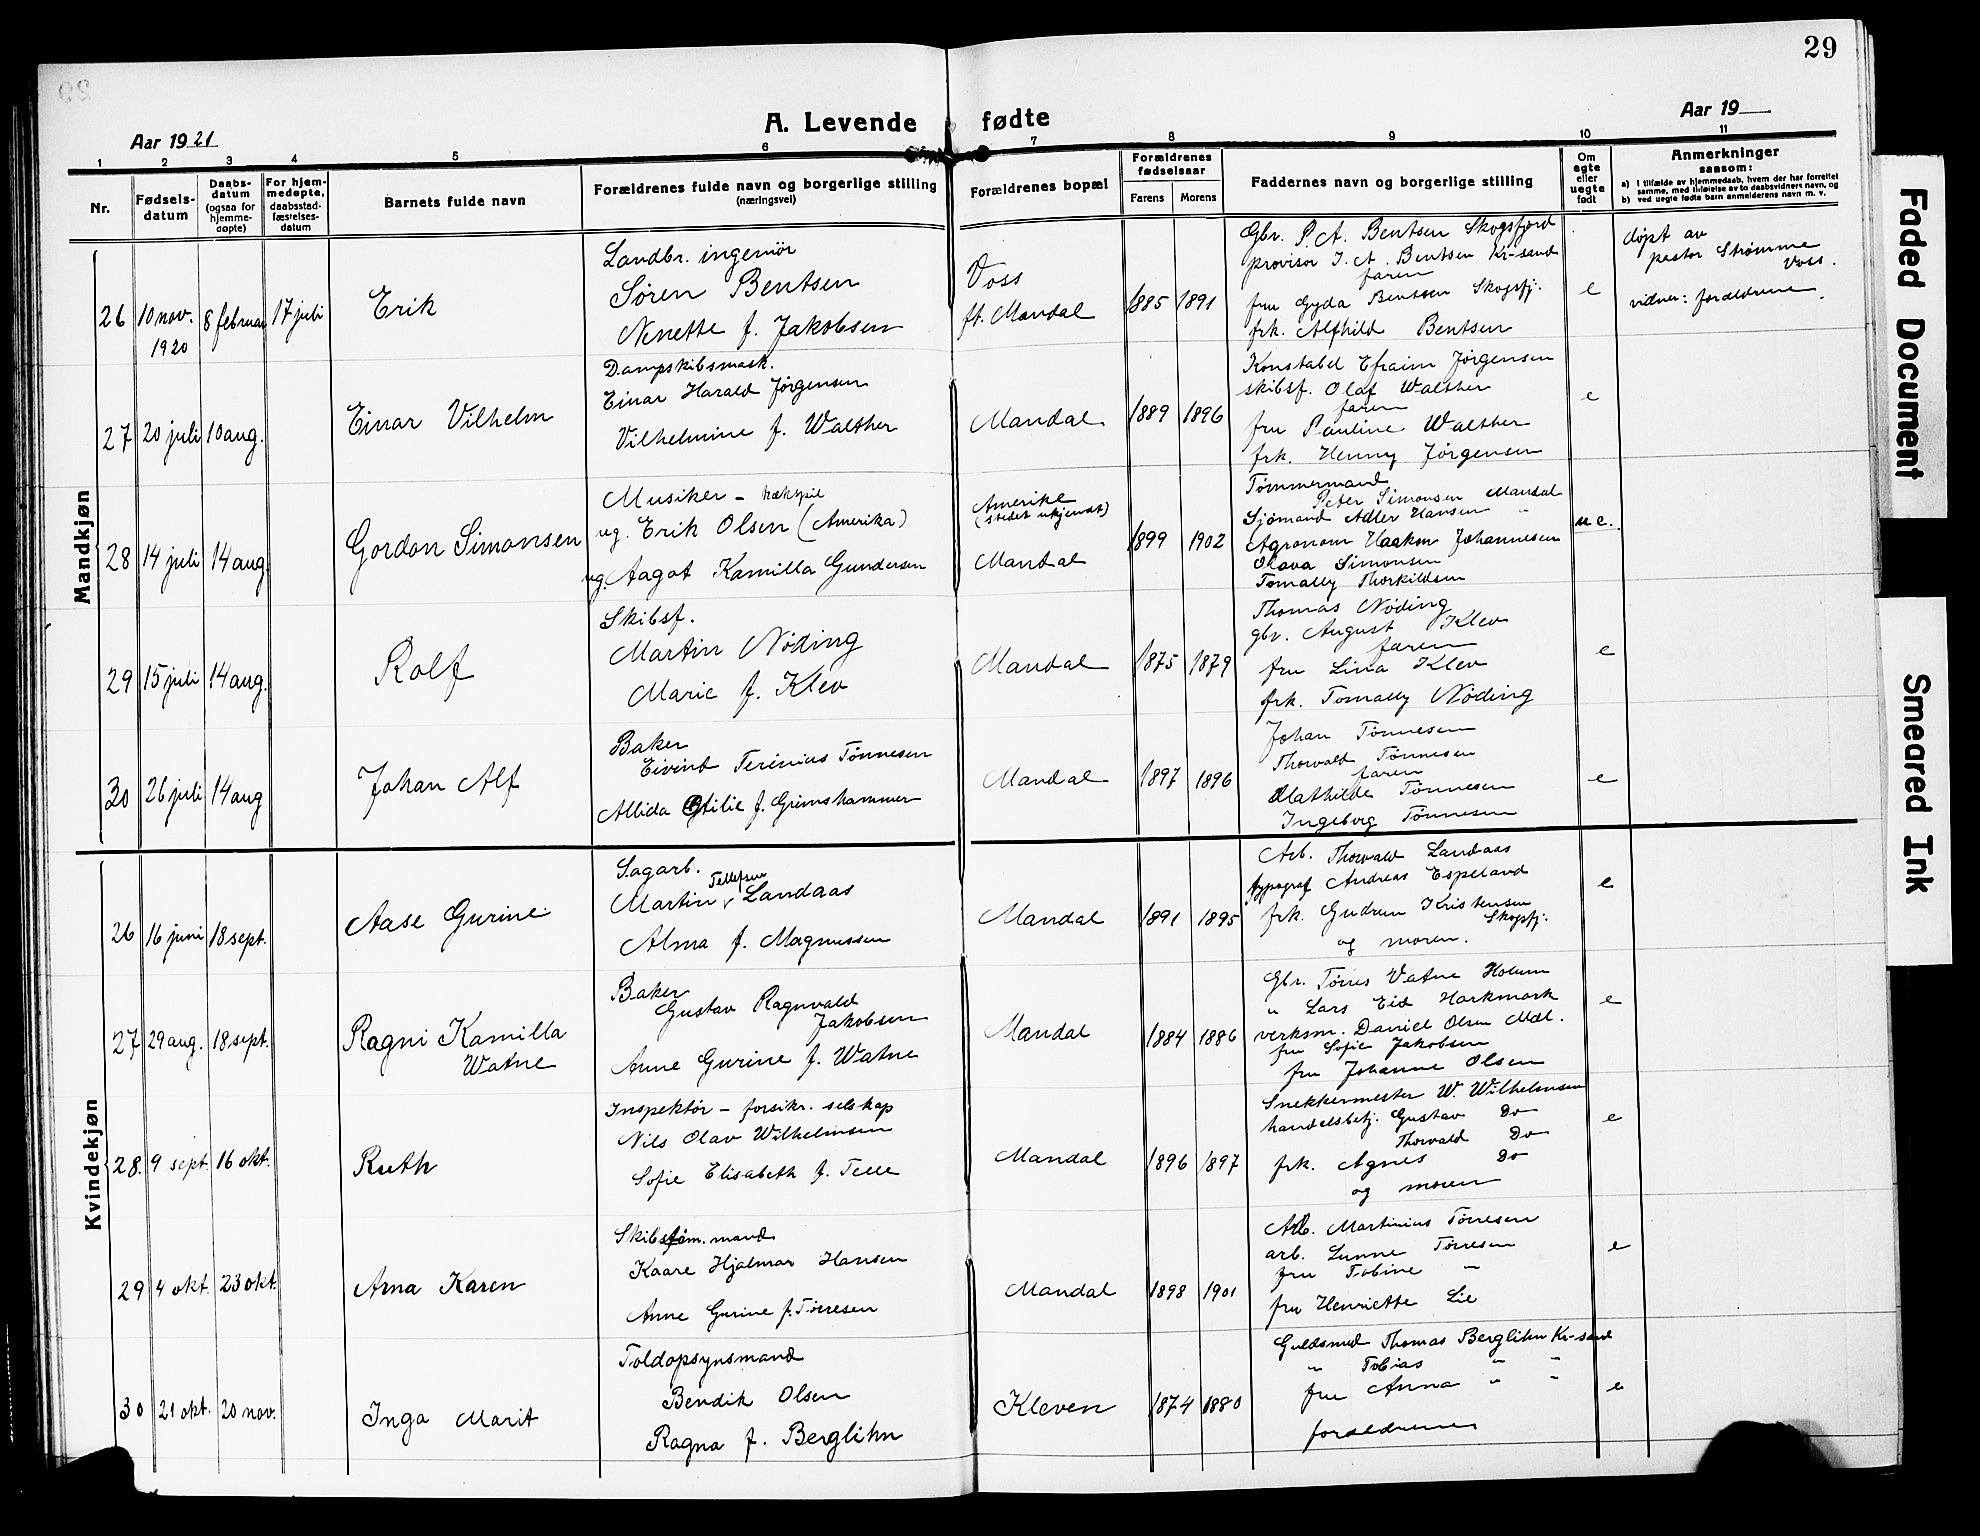 29
Aar 1921
A. Levende fødte
Aar 19
1 2 3 4 5 6 7 8 9 10 11
Nr.
Fødsels-
datum
Daabs-
datum
(ogsaa for
hjemme-
døpte)
For hjem-
medøpte,
daabsstad-
fæstelses-
datum
Barnets fulde navn
Forældrenes fulde navn og borgerlige stilling
(næringsvei)
Forældrenes bopæl
Forældrenes
fødselsaar
Farens Morens
Faddernes navn og borgerlige stilling
Om
egte
eller
uegte
født
Anmerkninger
saasom:
a) I tilfælde av hjemmedaab, hvem der har forrettet
samme, med tilføielse av to daabsvidners navn, og
b) ved uegte fødte barn anmelderens navn m. v.
Mandkjøn
26
10 nov.
1920
8 februar
17 juli
Erik
Landbr. ingeniør
Søren Bentsen
Nenette f. Jakobsen
Voss
ft. Mandal
1885 1891
Gbr. P. A. Bentsen Skogsfjord
provisor J. A. Bentsen Kr-sand
faren
fru Gyda Bentsen Skogsfj.
frk. Alfhild Bentsen
e
døpt av
pastor Strømme
Voss.
vidner: forældrene.
27
20 juli
10 aug.
Einar Vilhelm
Dampskibsmask.
Einar Harald Jørgensen
Vilhelmine f. Walther
Mandal
1889 1896
Konstabel Efraim Jørgensen
skibsf. Olaf Walther
faren
fru Pauline Walther
frk. Henny Jørgensen
e
28
14 juli
14 aug.
Gordon Simonsen
Musiker –
ug. Erik Olsen (Amerika)
ug. Aagot Kamilla Gundersen
Amerika
(stedet ukjendt)
Mandal
1899 1902
Tømmermand
Peter Simonsen Mandal
Sjømand Adler Hansen "
Agronom Haakon Johannesen
Olava Simonsen
Tomally Thorkildsen
u e.
29
15 juli
14 aug.
Rolf
Skibsf.
Martin Nøding
Marie f. Klev
Mandal
1875 1879
Thomas Nøding
gbr. August Klev
faren
fru Lina Klev
frk. Tomally Nøding
e
30
26 juli
14 aug
Johan Alf
Baker
Eivind Terinius Tønnesen
Allida Otilie f. Grimshammer
Mandal
1897 1896
Johan Tønnesen
Thorvald Tønnesen
faren
Mathilde Tønnesen
Ingeborg Tønnesen
e
Kvindekjøn
26
16 juni
18 sept.
Aase Gurine
Sagarb.
Tellefsen
Martin Landaas
Alma f. Magnussen
Mandal
1891 1895
Arb. Thorvald Landaas
typograf Andreas Espeland
frk. Gudrun Kristensen
Skogsfj.
og moren.
e
27
29 aug.
18 sept.
Ragni Kamilla
Watne
Baker
Gustav Ragnvald
Jakobsen
Anne Gurine f. Watne
Mandal
1884 1886
Gbr. Tørres Vatne Holum
" Lars Eid Harkmark
verksm. Daniel Olsen Mdl.
fru Sofie Jakobsen
fru Johanne Olsen
e
28.
9 sept.
16 okt.
Ruth
Inspektør – forsikr. selskap
Nils Olav Wilhelmsen
Sofie Elisabeth f. Telle
Mandal
1896 1897
Snekkermester W. Wilhelmsen
handelsbetj. Gustav Do
Thorvald Do
frk. Agnes Do
og moren
e
29
4 okt.
23 okt.
Arna Karen
Skibstøm. mand
Kaare Hjalmar Hansen
Anne Gurine f. Tørresen
Mandal
1898 1901
Arb. Martinius Tørresen
arb. Lunne Tørresen
fru Tobine "
fru Henriette Lie
e
30
21 okt.
20 nov.
Inga Marit
Toldopsynsmand
Bendik Olsen
Ragna f. Berglihn
Kleven
1874 1880
Guldsmed Thomas Berglihn Kr-sand
" Tobias " "
fru Anna " "
forældrene
e
Faded Document
Smeared Ink